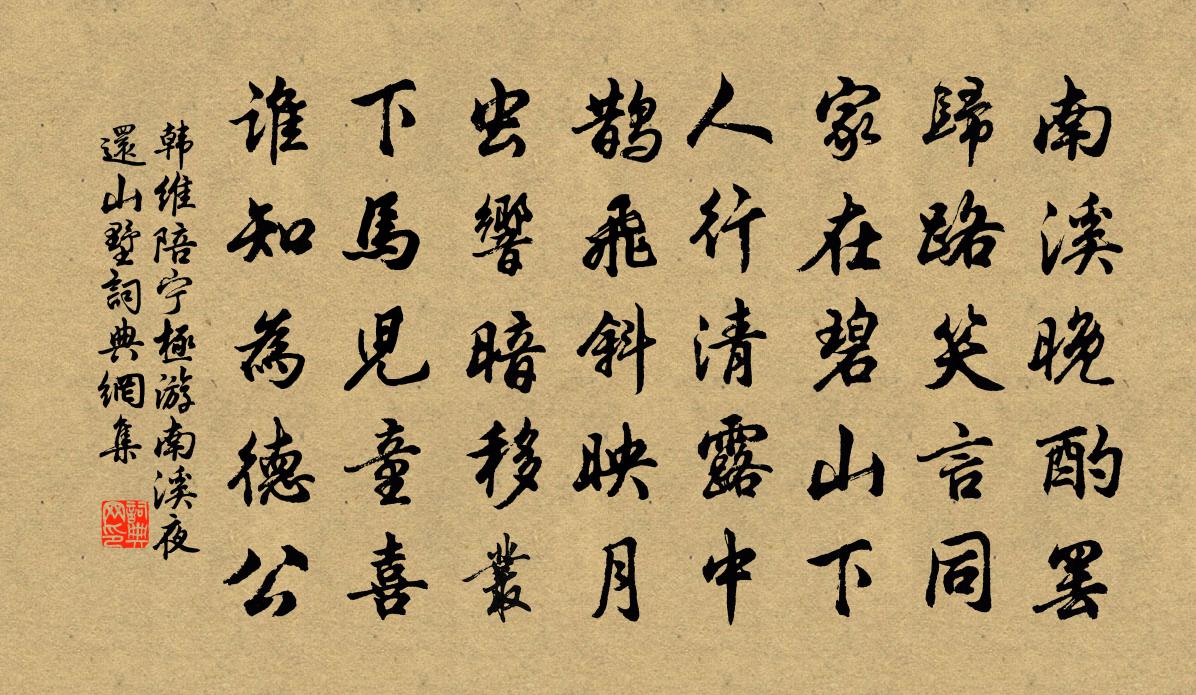 南溪晚酌罢
歸路笑言同
家在碧山下
人行清露中
鹊飛斜映月
虫響暗移叢
下馬児童喜
谁知為德公
韩维陪宁極游南溪夜
還山墅詞典網集
詞典網印